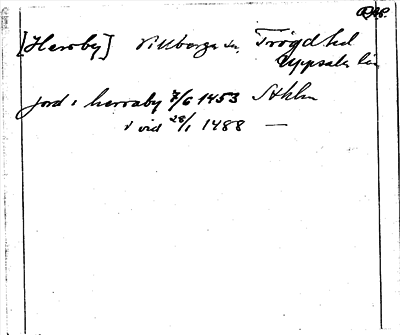 [Herrby] Villberga sn Trögd hd
Uppsala län
jord i herraby 7/6 1453 Sthlm
i vid 28/1 1488 —